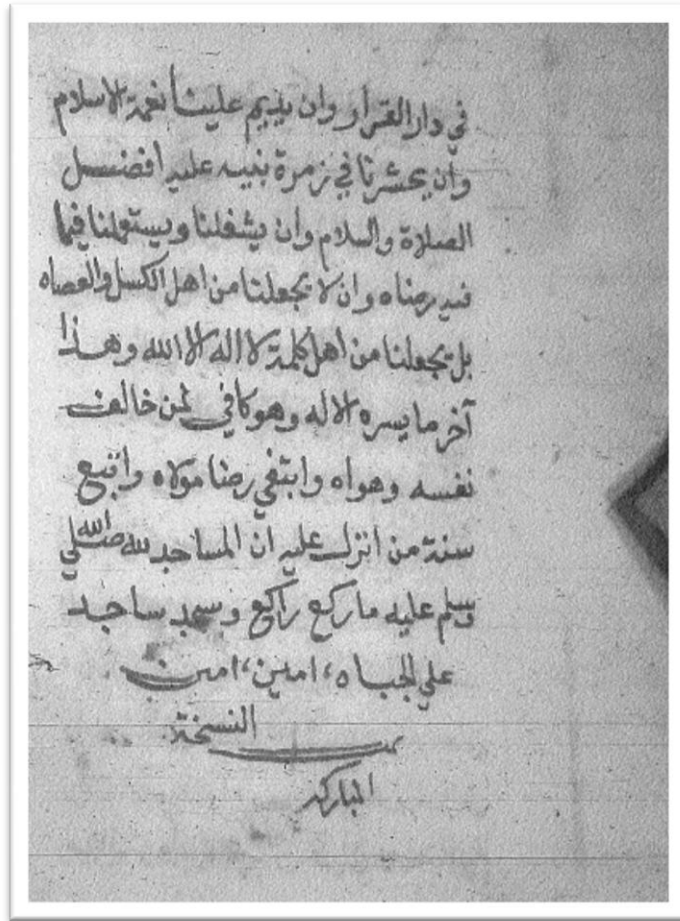 في دار القرار وان يديم علينا نعمة الاسلام
وان يحشرنا في زمرة بنيه عليه افضل
الصلاة والسلام وان يشغلنا ويستعملنا فيما
فيه رضاه وان لا يجعلنا من اهل الكسل والعصاه
بل يجعلنا من اهل كلمة لا اله الا الله وهذا
آخر ما يسره الاله وهو كافي لمن خالف
نفسه وهواه وابتغي رضا مولاه واتبع
سنة من انزلت عليه ان المساجد لله صلي الله
وسلم عليه ما ركع راكع وسجد ساجد
علي الجباه، امين، امين
تمت النسخة
المباركه